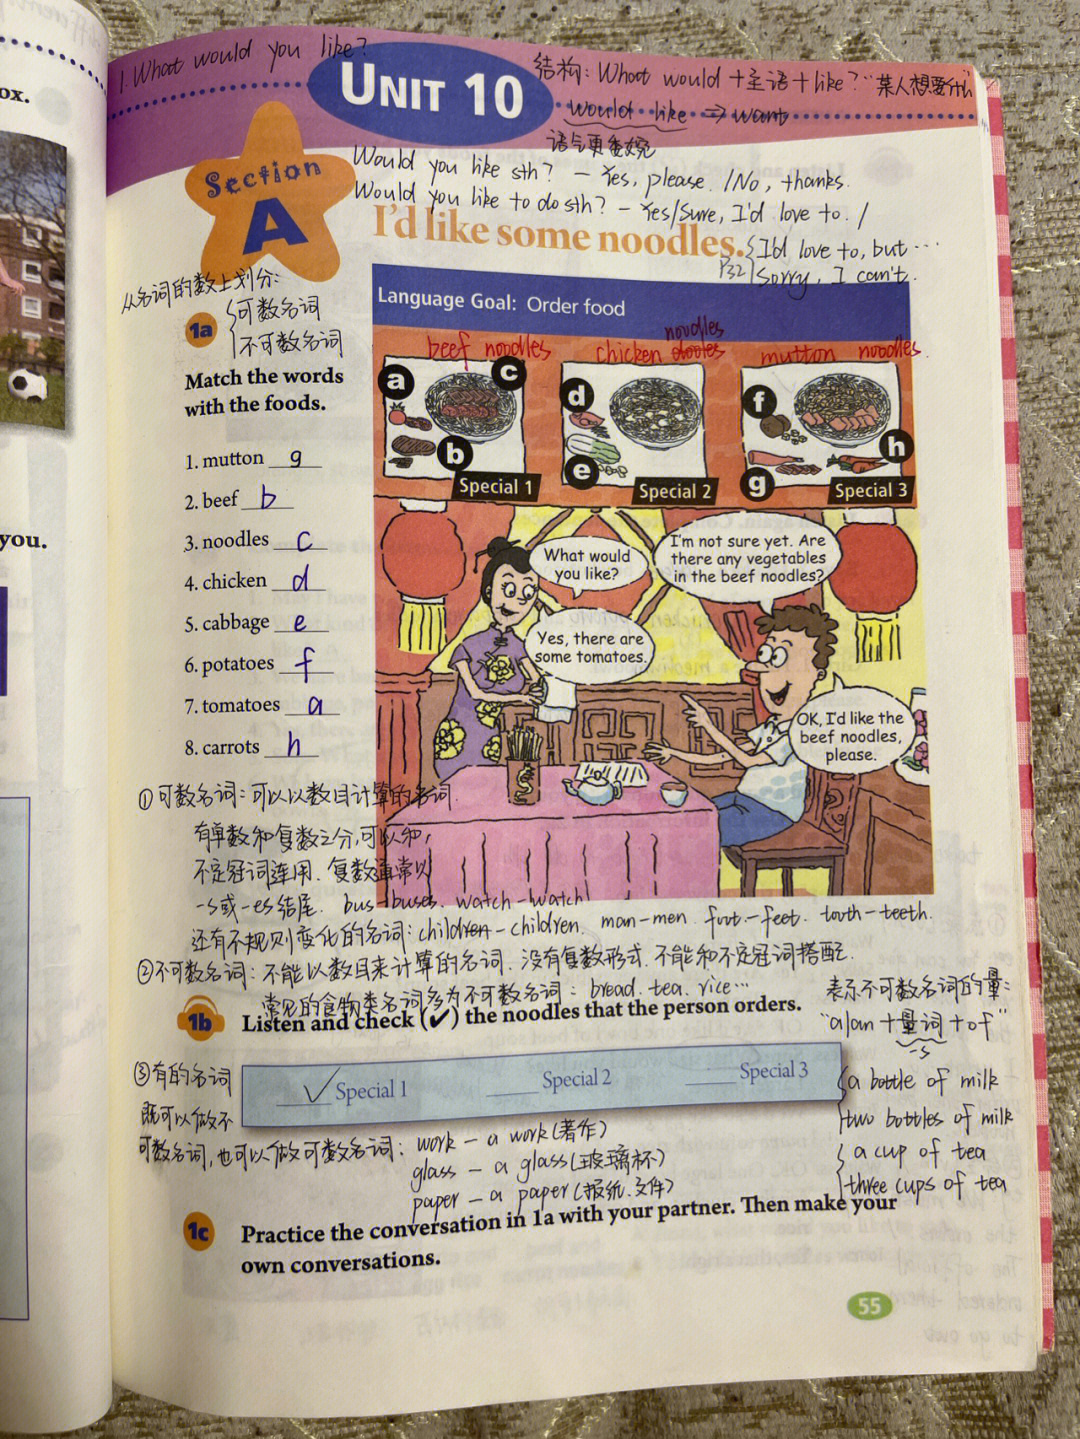 ox.
you.
1. What would you like?
UNIT 10
结构: What would + 主语 + like? "某人想要什么"
would like => want
语气更委婉
Would you like sth? - Yes, please. / No, thanks.
Would you like to do sth? - Yes/Sure, I'd love to. /
I'd love to, but ...
P32 Sorry, I can't.
Section
A
I'd like some noodles.
从名词的数上划分:
可数名词
不可数名词
Language Goal: Order food
1a
Match the words
with the foods.
1. mutton g
2. beef b
3. noodles c
4. chicken d
5. cabbage e
6. potatoes f
7. tomatoes a
8. carrots h
beef noodles
noodles
chicken
mutton noodles.
a
c
b
Special 1
d
e
Special 2
f
h
g
Special 3
What would
you like?
I'm not sure yet. Are
there any vegetables
in the beef noodles?
Yes, there are
some tomatoes.
OK, I'd like the
beef noodles,
please.
①可数名词: 可以以数目计算的名词.
有单数和复数之分, 可以和
不定冠词连用. 复数通常以
-s或-es结尾. bus-buses. watch-watch
还有不规则变化的名词: children - children. man-men. foot-feet. tooth-teeth.
②不可数名词: 不能以数目来计算的名词. 没有复数形式. 不能和不定冠词搭配.
常见的食物类名词多为不可数名词: bread. tea. rice...
1b
Listen and check (✓) the noodles that the person orders.
✓ Special 1
Special 2
Special 3
表示不可数名词的量:
"a/an + 量词 + of"
-s
a bottle of milk
two bottles of milk
a cup of tea
three cups of tea
③有的名词
既可以做不
可数名词, 也可以做可数名词: work - a work (著作)
glass - a glass (玻璃杯)
paper - a paper (报纸、文件)
1c
Practice the conversation in 1a with your partner. Then make your
own conversations.
55